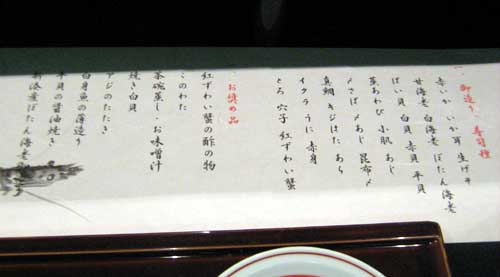 一、御造り 寿司種
赤いか いか耳 生げそ
甘海老 白海老 ぼたん海老
ばい貝 白貝 赤貝 平貝
蒸あわび 小肌 あじ
〆さば 〆あじ 昆布〆
真鯛 キジはた あら
イクラ うに 赤身
とろ 穴子 紅ずわい蟹
お奨め品
紅ずわい蟹の酢の物
このわた
茶碗蒸し・お味噌汁
焼き白貝
アジのたたき
白身魚の薄造り
平貝の醤油焼き
新湊産ぼたん海老